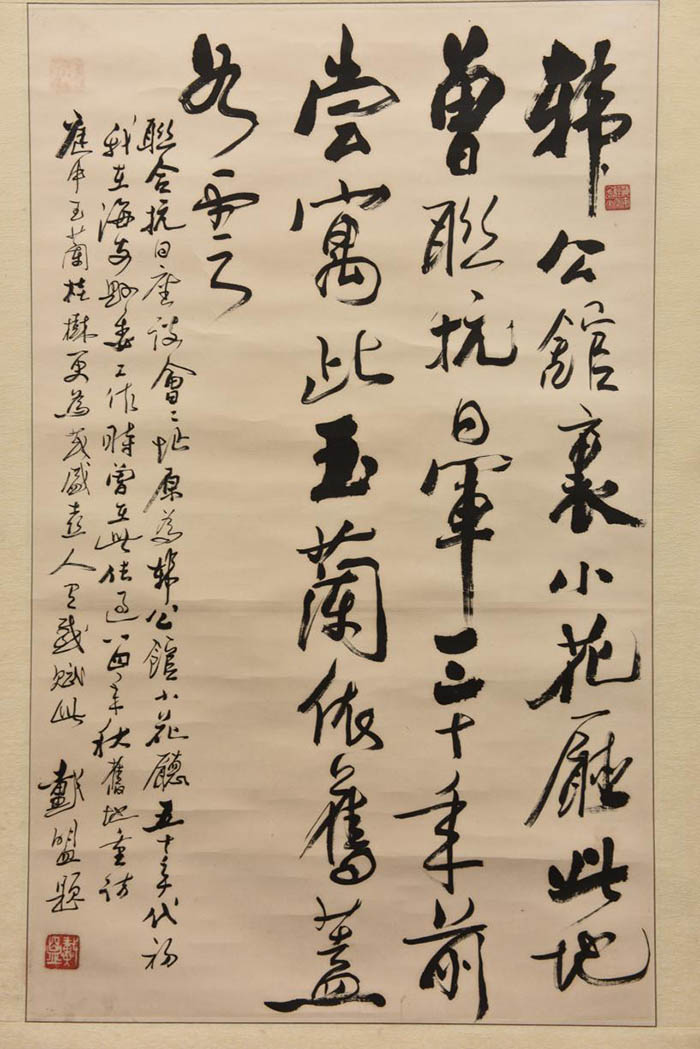 韓公館裏小花廳此地
曾聯抗日軍三十年前
嘗寓此玉蘭依舊蓋
如雲
聯合抗日座談會會址原為韓公館小花廳五十年代初
我在海安縣委工作時曾在此住過八四年秋舊地重訪
庭中玉蘭桂樹更為茂盛喜人有感賦此 戴盟題